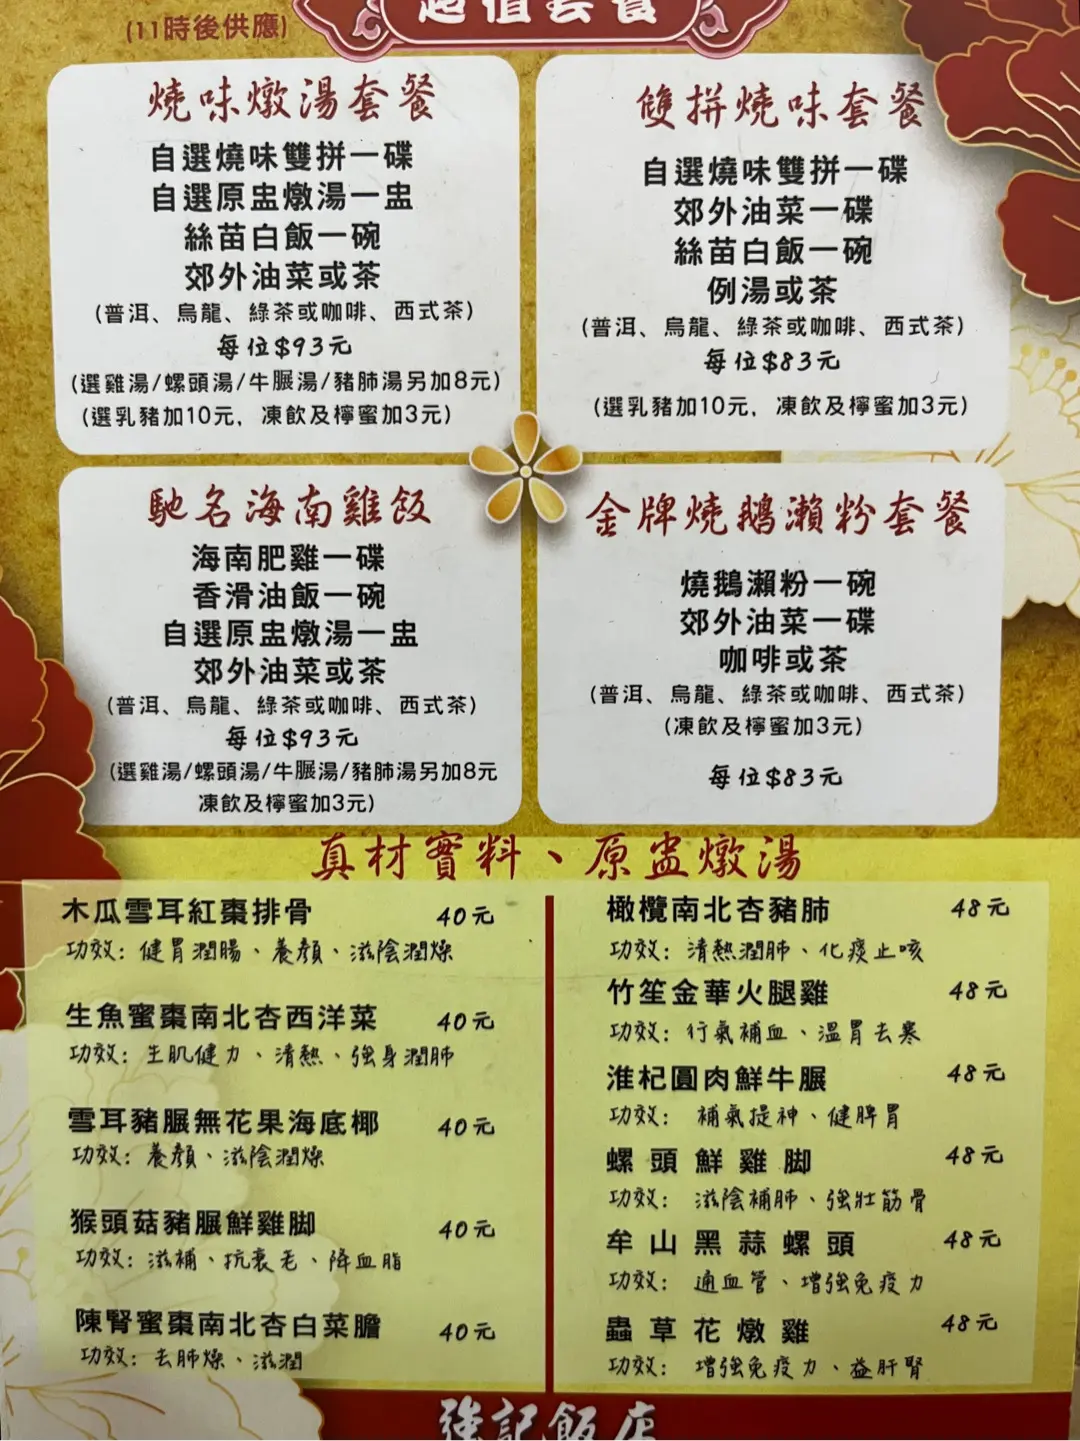 超值套餐
(11時後供應)
燒味燉湯套餐
自選燒味雙拼一碟
自選原盅燉湯一盅
絲苗白飯一碗
郊外油菜或茶
(普洱、烏龍、綠茶或咖啡、西式茶)
每位$93元
(選雞湯/螺頭湯/牛𦟌湯/豬肺湯另加8元)
(選乳豬加10元，凍飲及檸蜜加3元)
雙拼燒味套餐
自選燒味雙拼一碟
郊外油菜一碟
絲苗白飯一碗
例湯或茶
(普洱、烏龍、綠茶或咖啡、西式茶)
每位$83元
(選乳豬加10元，凍飲及檸蜜加3元)
馳名海南雞飯
海南肥雞一碟
香滑油飯一碗
自選原盅燉湯一盅
郊外油菜或茶
(普洱、烏龍、綠茶或咖啡、西式茶)
每位$93元
(選雞湯/螺頭湯/牛𦟌湯/豬肺湯另加8元
凍飲及檸蜜加3元)
金牌燒鵝瀨粉套餐
燒鵝瀨粉一碗
郊外油菜一碟
咖啡或茶
(普洱、烏龍、綠茶或咖啡、西式茶)
(凍飲及檸蜜加3元)
每位$83元
真材實料、原盅燉湯
木瓜雪耳紅棗排骨 40元
功效：健胃潤腸、養顏、滋陰潤燥
生魚蜜棗南北杏西洋菜 40元
功效：生肌健力、清熱、強身潤肺
雪耳豬𦟌無花果海底椰 40元
功效：養顏、滋陰潤燥
猴頭菇豬𦟌鮮雞脚 40元
功效：滋補、抗衰老、降血脂
陳腎蜜棗南北杏白菜膽 40元
功效：去肺燥、滋潤
橄欖南北杏豬肺 48元
功效：清熱潤肺、化痰止咳
竹笙金華火腿雞 48元
功效：行氣補血、溫胃去寒
淮杞圓肉鮮牛𦟌 48元
功效：補氣提神、健脾胃
螺頭鮮雞脚 48元
功效：滋陰補肺、強壯筋骨
牟山黑蒜螺頭 48元
功效：通血管、增強免疫力
蟲草花燉雞 48元
功效：增強免疫力、益肝腎
強記飯店